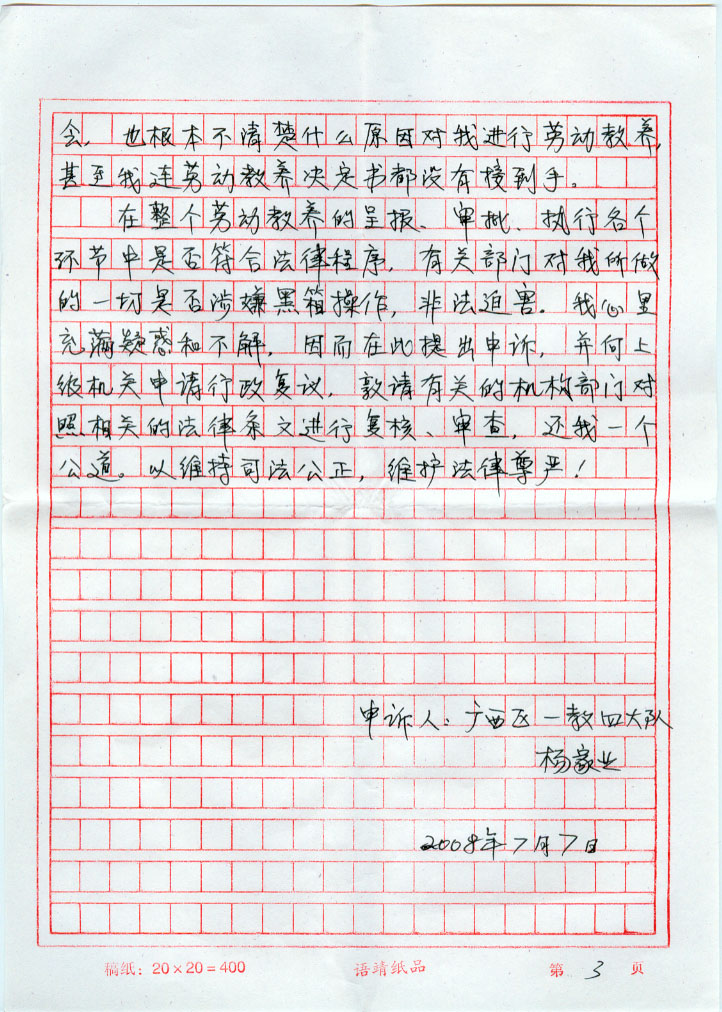 会，也根本不清楚什么原因对我进行劳动教养，
甚至我连劳动教养决定书都没有接到手。
在整个劳动教养的呈报、审批、执行各个
环节中是否符合法律程序，有关部门对我所做
的一切是否涉嫌黑箱操作，非法迫害。我心里
充满疑惑和不解，因而在此提出申诉，并向上
级机关申请行政复议，敦请有关的机构部门对
照相关的法律条文进行复核、审查，还我一个
公道。以维持司法公正，维护法律尊严！
申诉人：广西区一教四大队
杨家业
2008年7月7日
稿纸：20×20=400 语靖纸品 第 3 页